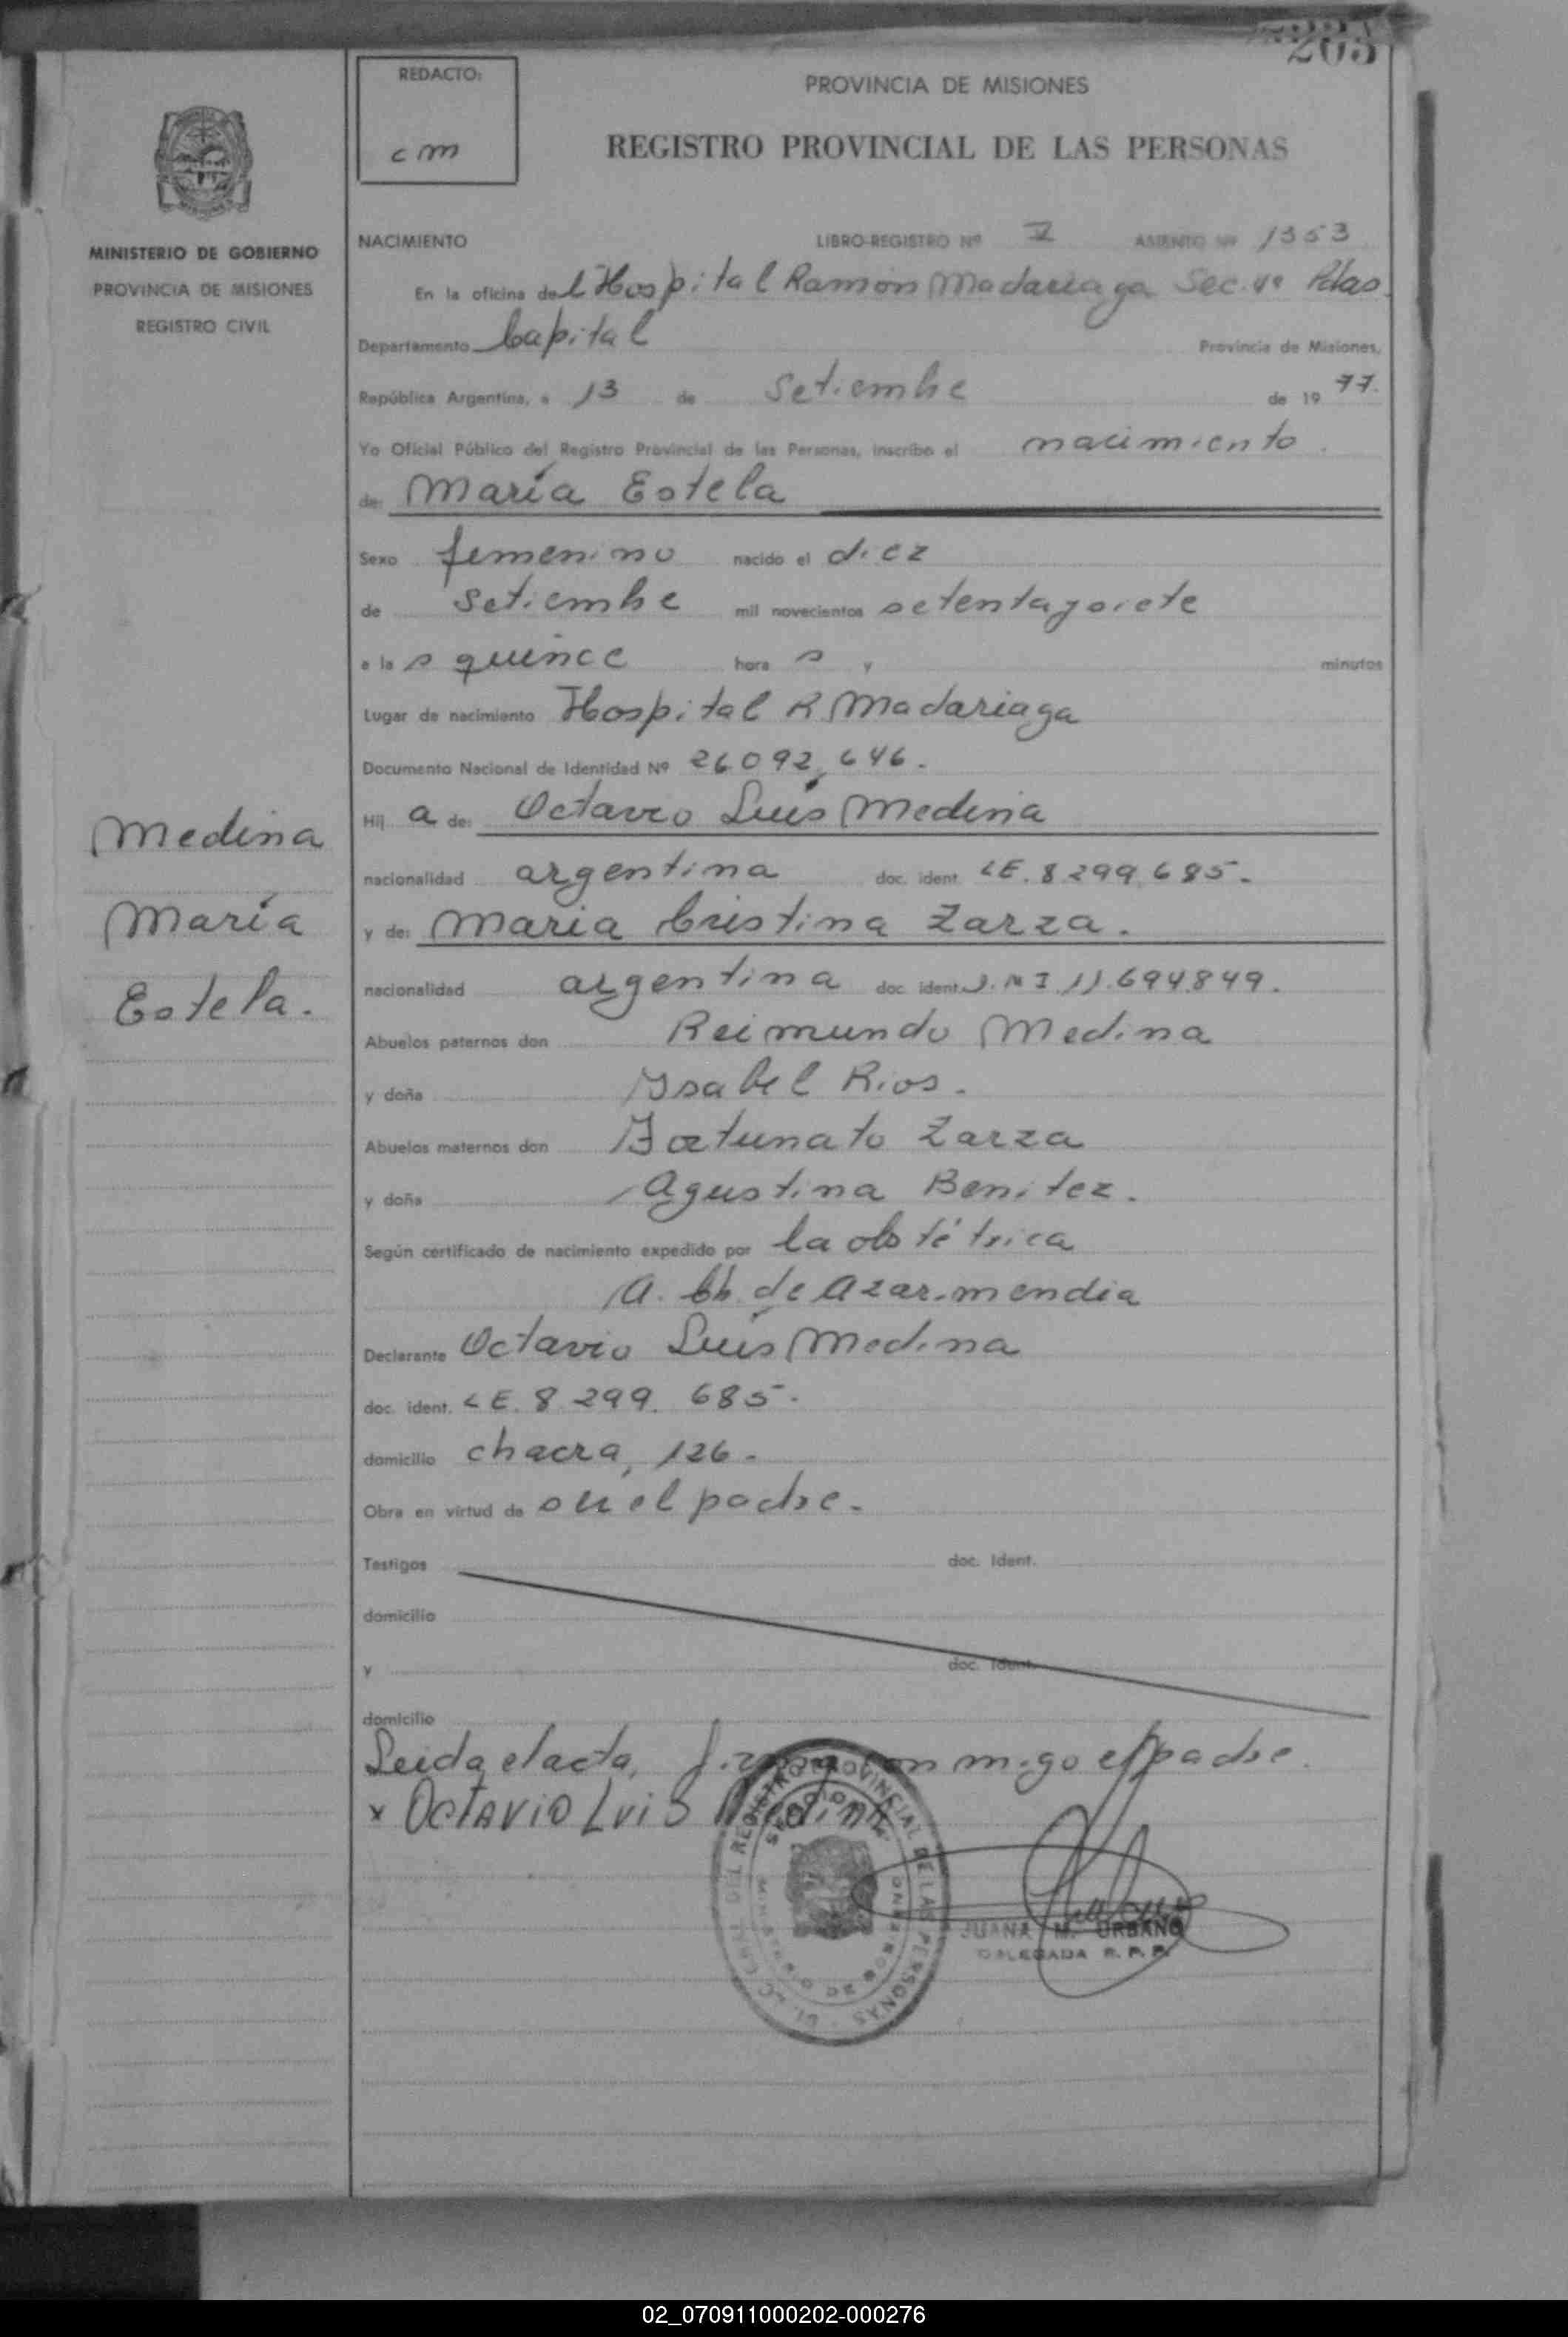 205
REDACTO:
cm
PROVINCIA DE MISIONES
REGISTRO PROVINCIAL DE LAS PERSONAS
MINISTERIO DE GOBIERNO
PROVINCIA DE MISIONES
REGISTRO CIVIL
NACIMIENTO LIBRO-REGISTRO Nº V ASIENTO Nº 1353
En la oficina del Hospital Ramón Madariaga Sec. 4ª Pdas.
Departamento Capital Provincia de Misiones,
República Argentina, a 13 de Setiembre de 19 77.
Yo Oficial Público del Registro Provincial de las Personas, inscribo el nacimiento.
de: María Estela
Sexo femenino nacido el diez
de Setiembre mil novecientos setentaysiete
a la s quince hora s y minutos
Lugar de nacimiento Hospital R Madariaga
Documento Nacional de Identidad Nº 26.092.646.
Hij a de: Octavio Luis Medina
nacionalidad argentina doc. ident. LE. 8.299.685.
y de: Maria Cristina Zarza.
nacionalidad argentina doc. ident. D.N.I 11.694.849.
Abuelos paternos don Reimundo Medina
y doña Ysabel Rios.
Abuelos maternos don Fortunato Zarza
y doña Agustina Benitez.
Según certificado de nacimiento expedido por la obstétrica
A. de Azarmendia
Declarante Octavio Luis Medina
doc. ident. LE. 8.299.685.
domicilio chacra, 126.
Obra en virtud de ser el padre.
Testigos doc. Ident.
domicilio
y doc. Ident.
domicilio
Leida el acta, firma conmigo el padre.
x OCTAVIO LUIS Medina
Medina
María
Estela.
DIREC. GRAL. DEL REGISTRO PROVINCIAL DE LAS PERSONAS
MISIONES
JUANA M. URBANO
DELEGADA R. P. P.
02_070911000202-000276